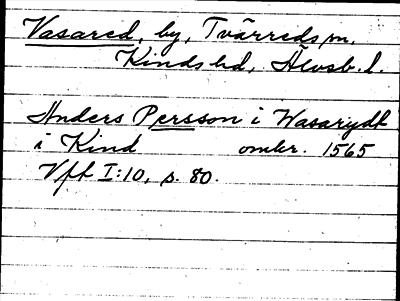 Vasared, by, Tvärreds sn.
Kinds hd, Älvsb. l.
Anders Persson i Wasarydh
i Kind omkr. 1565
Vfl I:10, s. 80.